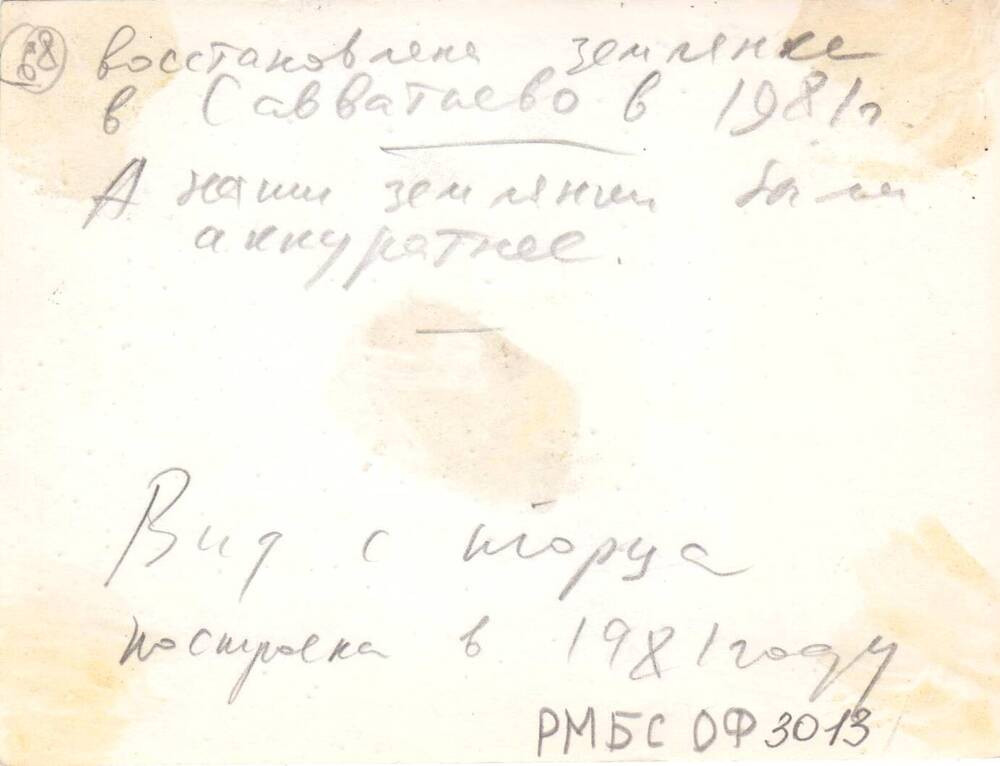 68 восстановлена землянка
в Савватьево в 1981г.
А наши землянки были
аккуратнее.
Вид с торца
построена в 1981 году
РМБС ОФ 3013